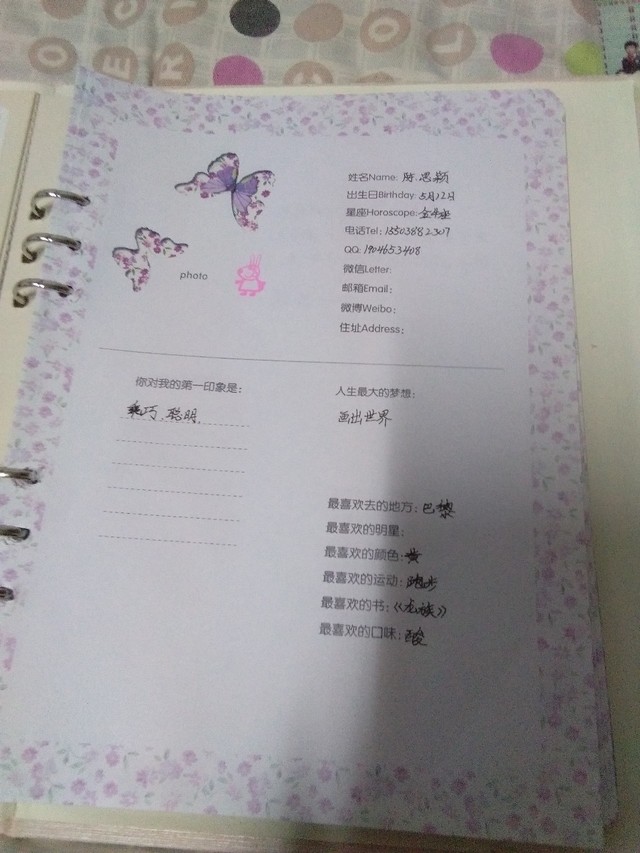 姓名Name: 陈思颖
出生日Birthday: 5月12日
星座Horoscope: 金牛座
电话Tel: 15503882307
QQ: 1904653408
微信Letter:
邮箱Email:
微博Weibo:
住址Address:
photo
你对我的第一印象是:
乖巧、聪明、
人生最大的梦想:
画出世界
最喜欢去的地方: 巴黎
最喜欢的明星:
最喜欢的颜色: 黄
最喜欢的运动: 跑步
最喜欢的书:《龙族》
最喜欢的口味: 酸